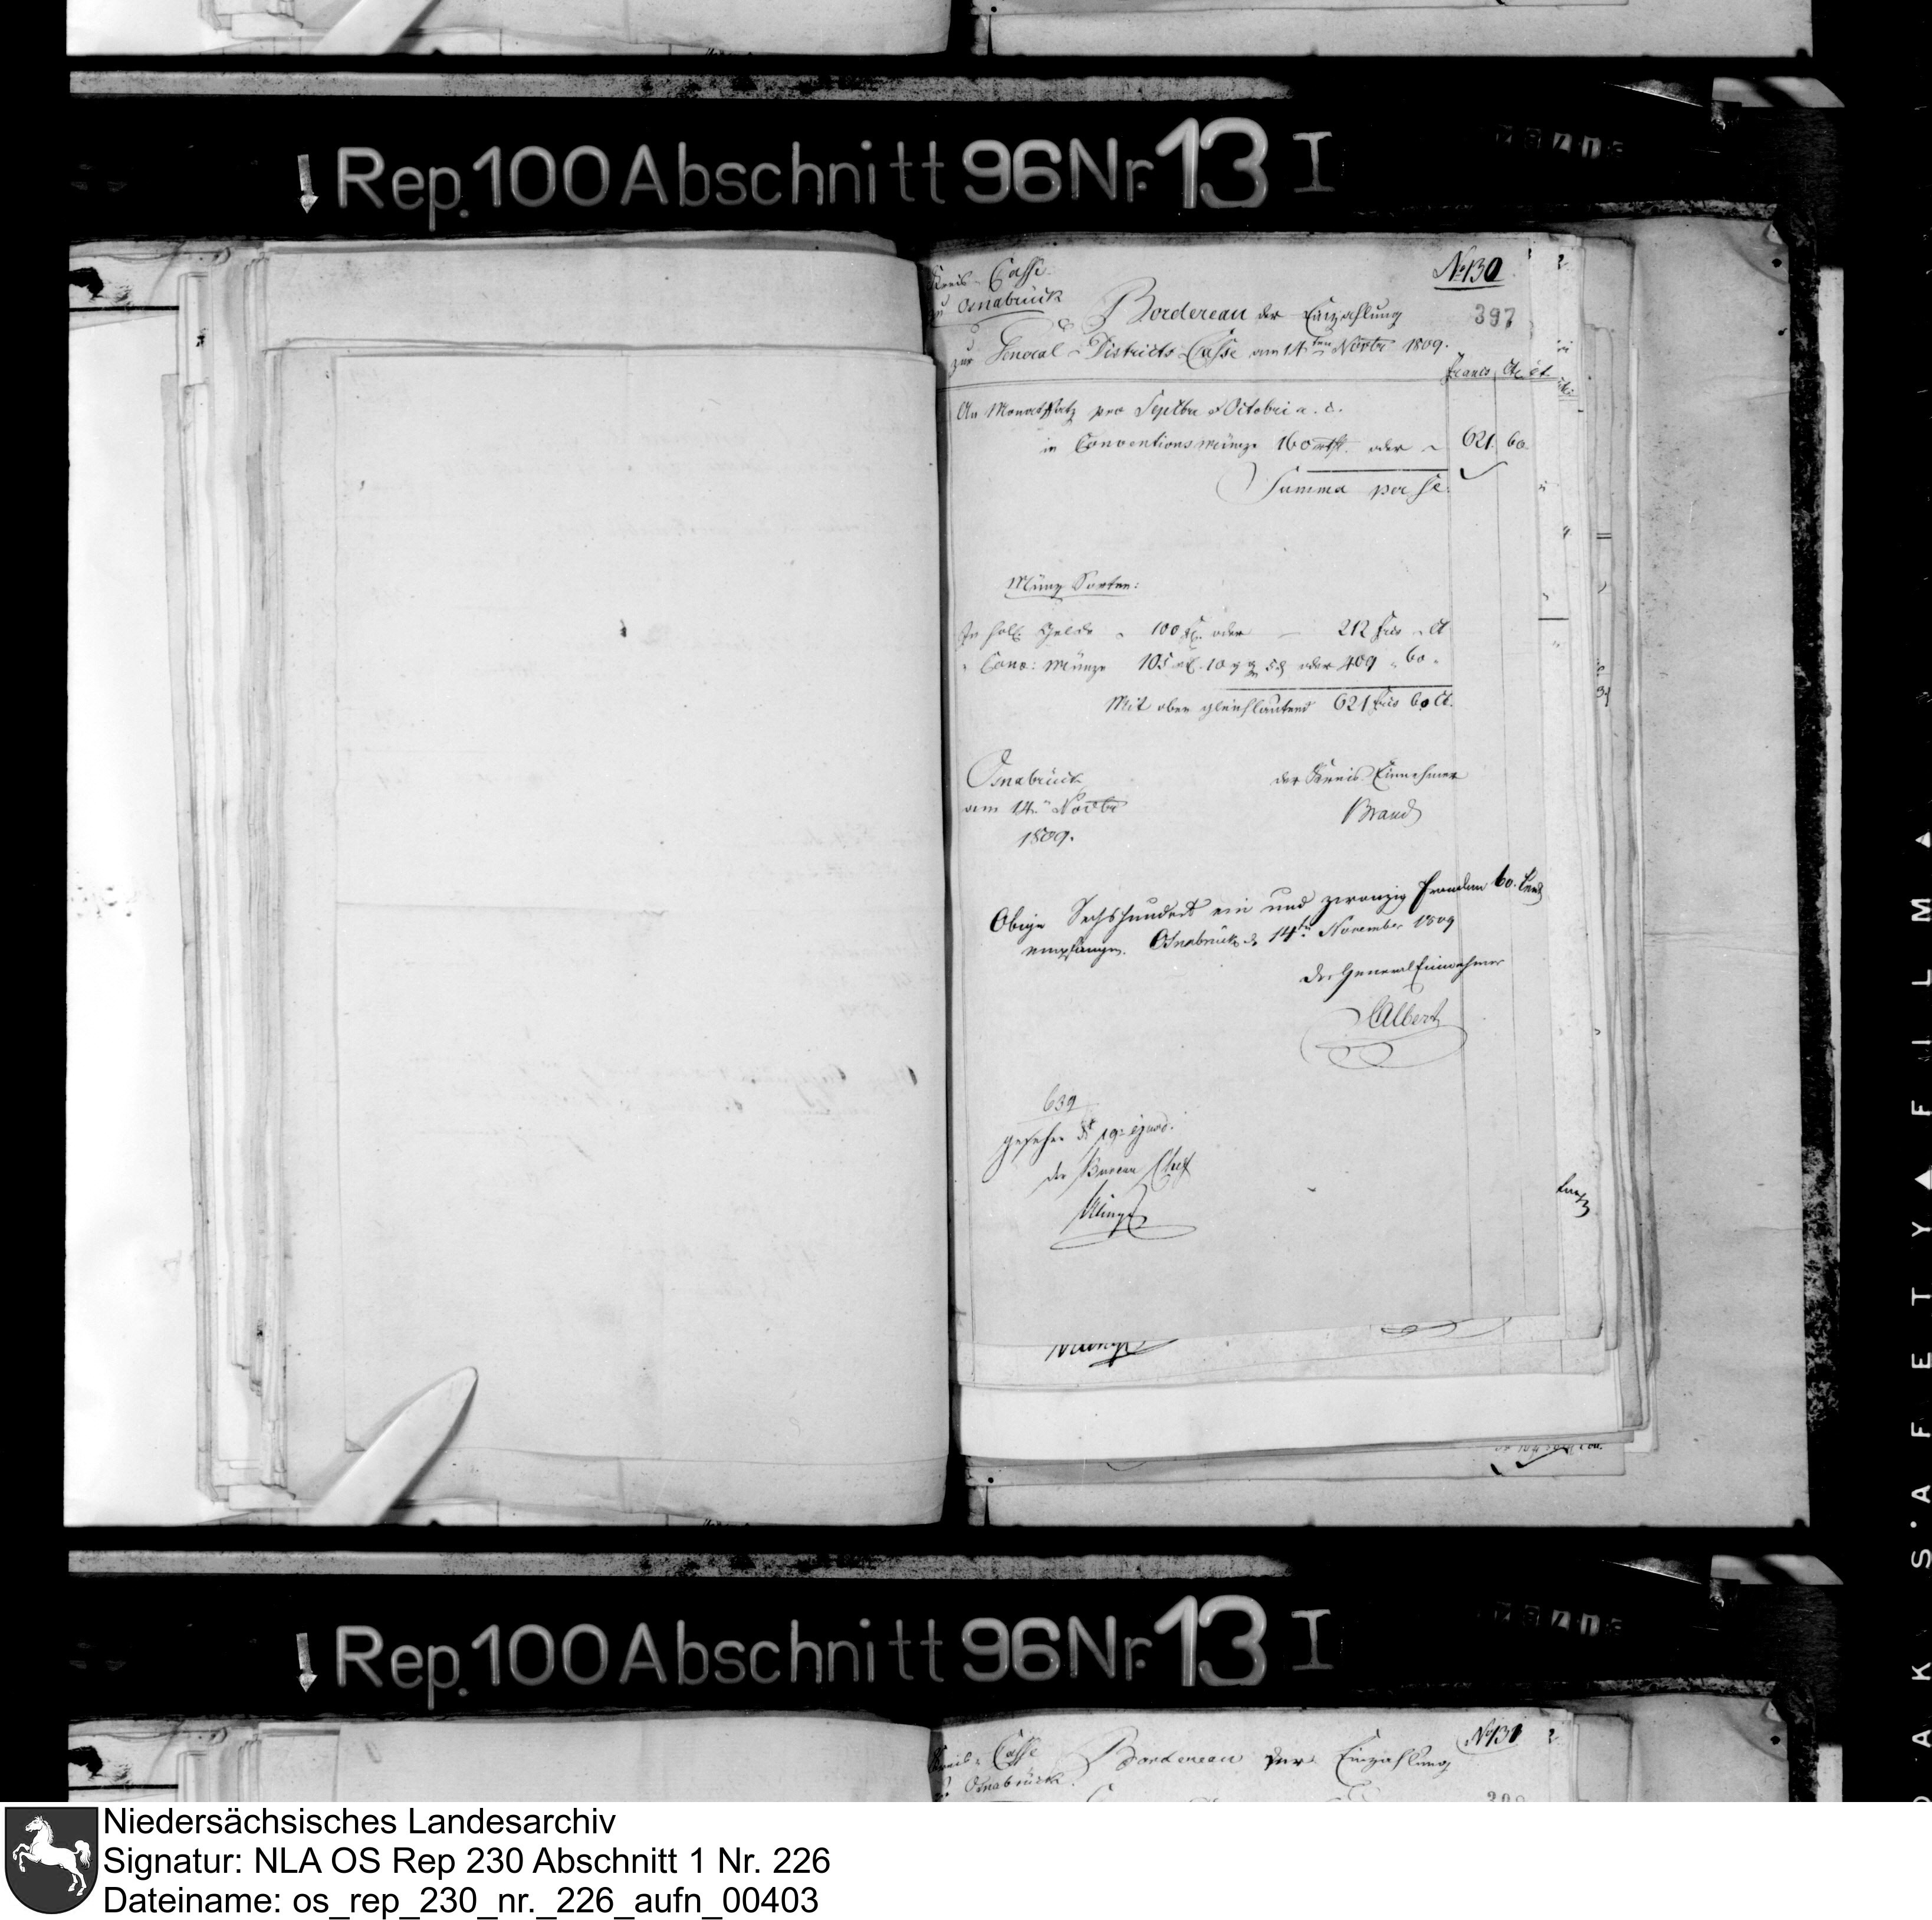 Rep. 100 Abschnitt 96 Nr. 13 I
Kreis-Casse
zu Osnabrück
No 130
Bordereau der Einzahlung
397
zur General-Districts-Casse am 14ten Novbr 1809.
Francs Ct.
An Monatschatz pro Septbr & Octobri a. c.
in Conventionsmünze 160 rthlr. oder 621. 60.
Summa per se.
Münz Sorten:
In holl. Gelde 100 fl. oder 212 frcs
Conv: Münze 105 10 oder 409 60
Mit oben gleichlautend 621 frcs 60 Ct.
Osnabrück
am 14ten Novbr
1809.
der Kreis-Einnehmer
Brand
Obige Sechshundert ein und zwanzig Franken 60. Cent
empfangen. Osnabrück d. 14ten November 1809
Der General Einnehmer
Albert
639
gesehen d. 19 ejusd.
der Bureau Chef
Rep. 100 Abschnitt 96 Nr. 13 I
Kreis-Casse
Osnabrück
Bordereau der Einzahlung
No 131
SAFETY FILM
Niedersächsisches Landesarchiv
Signatur: NLA OS Rep 230 Abschnitt 1 Nr. 226
Dateiname: os_rep_230_nr._226_aufn_00403